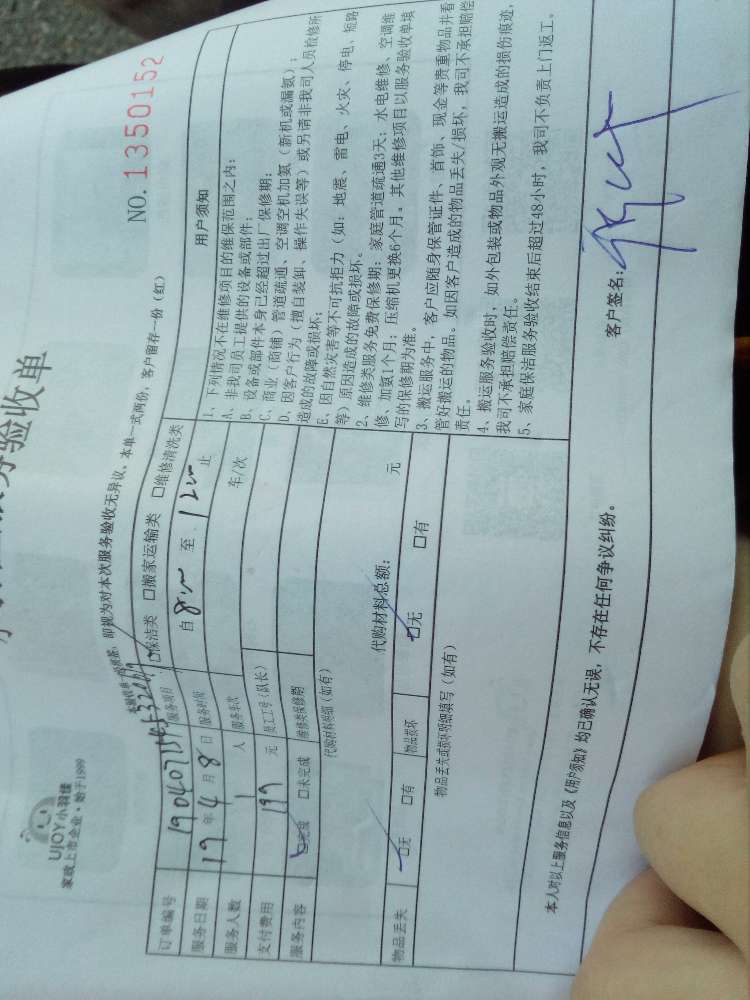 UJOY小羽佳
家政上市企业·始于1999
务验收单
NO.1350152
即视为对本次服务验收无异议。本单一式两份，客户留存一份（红）
订单编号
服务项目 保洁类 □搬家运输类 □维修清洗类
服务日期 19年4月8日 服务时间 自 8:00 至 12:00 止
服务人数 1 人 服务车次 车/次
支付费用 199 元 员工工号(队长)
服务内容 ☑完成 □未完成 维修类保修期
代购材料明细(如有)
代购材料总额: 元
物品丢失 ☑无 □有 物品损坏 ☑无 □有
物品丢失或损坏明细填写(如有)
用户须知
1、下列情况不在维修项目的维保范围之内:
A、非我司员工提供的设备或部件;
B、设备或部件本身已经超过出厂保修期;
C、商业(商铺)管道疏通、空调空机加氨(新机或漏氨);
D、因客户行为(擅自装卸、操作失误等)或另请非我司人员检修所
造成的故障或损坏;
E、因自然灾害等不可抗拒力(如:地震、雷电、火灾、停电、短路
等)原因造成的故障或损坏。
2、维修类服务免费保修期:家庭管道疏通3天;水电维修、空调维
修、加氨1个月;压缩机更换6个月。其他维修项目以服务验收单填
写的保修期为准。
3、搬运服务中,客户应随身保管证件、首饰、现金等贵重物品并看
管好搬运的物品。如因客户造成的物品丢失/损坏,我司不承担赔偿
责任。
4、搬运服务验收时,如外包装或物品外观无搬运造成的损伤痕迹,
我司不承担赔偿责任。
5、家庭保洁服务验收结束后超过48小时,我司不负责上门返工。
本人对以上服务信息以及《用户须知》均已确认无误,不存在任何争议纠纷。
客户签名: